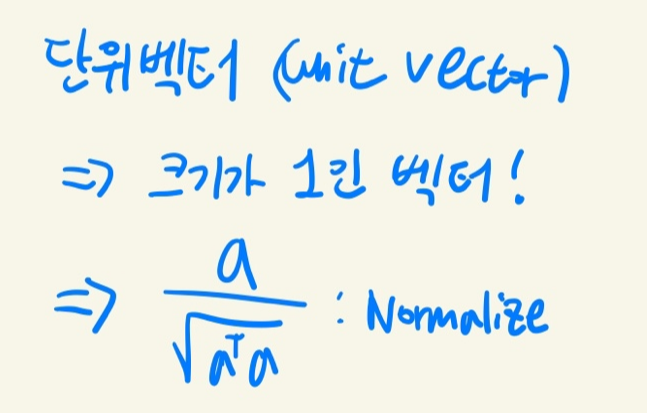 단위벡터 (unit vector)
⇒ 크기가 1인 벡터!
⇒ a / √(aᵀa) : Normalize